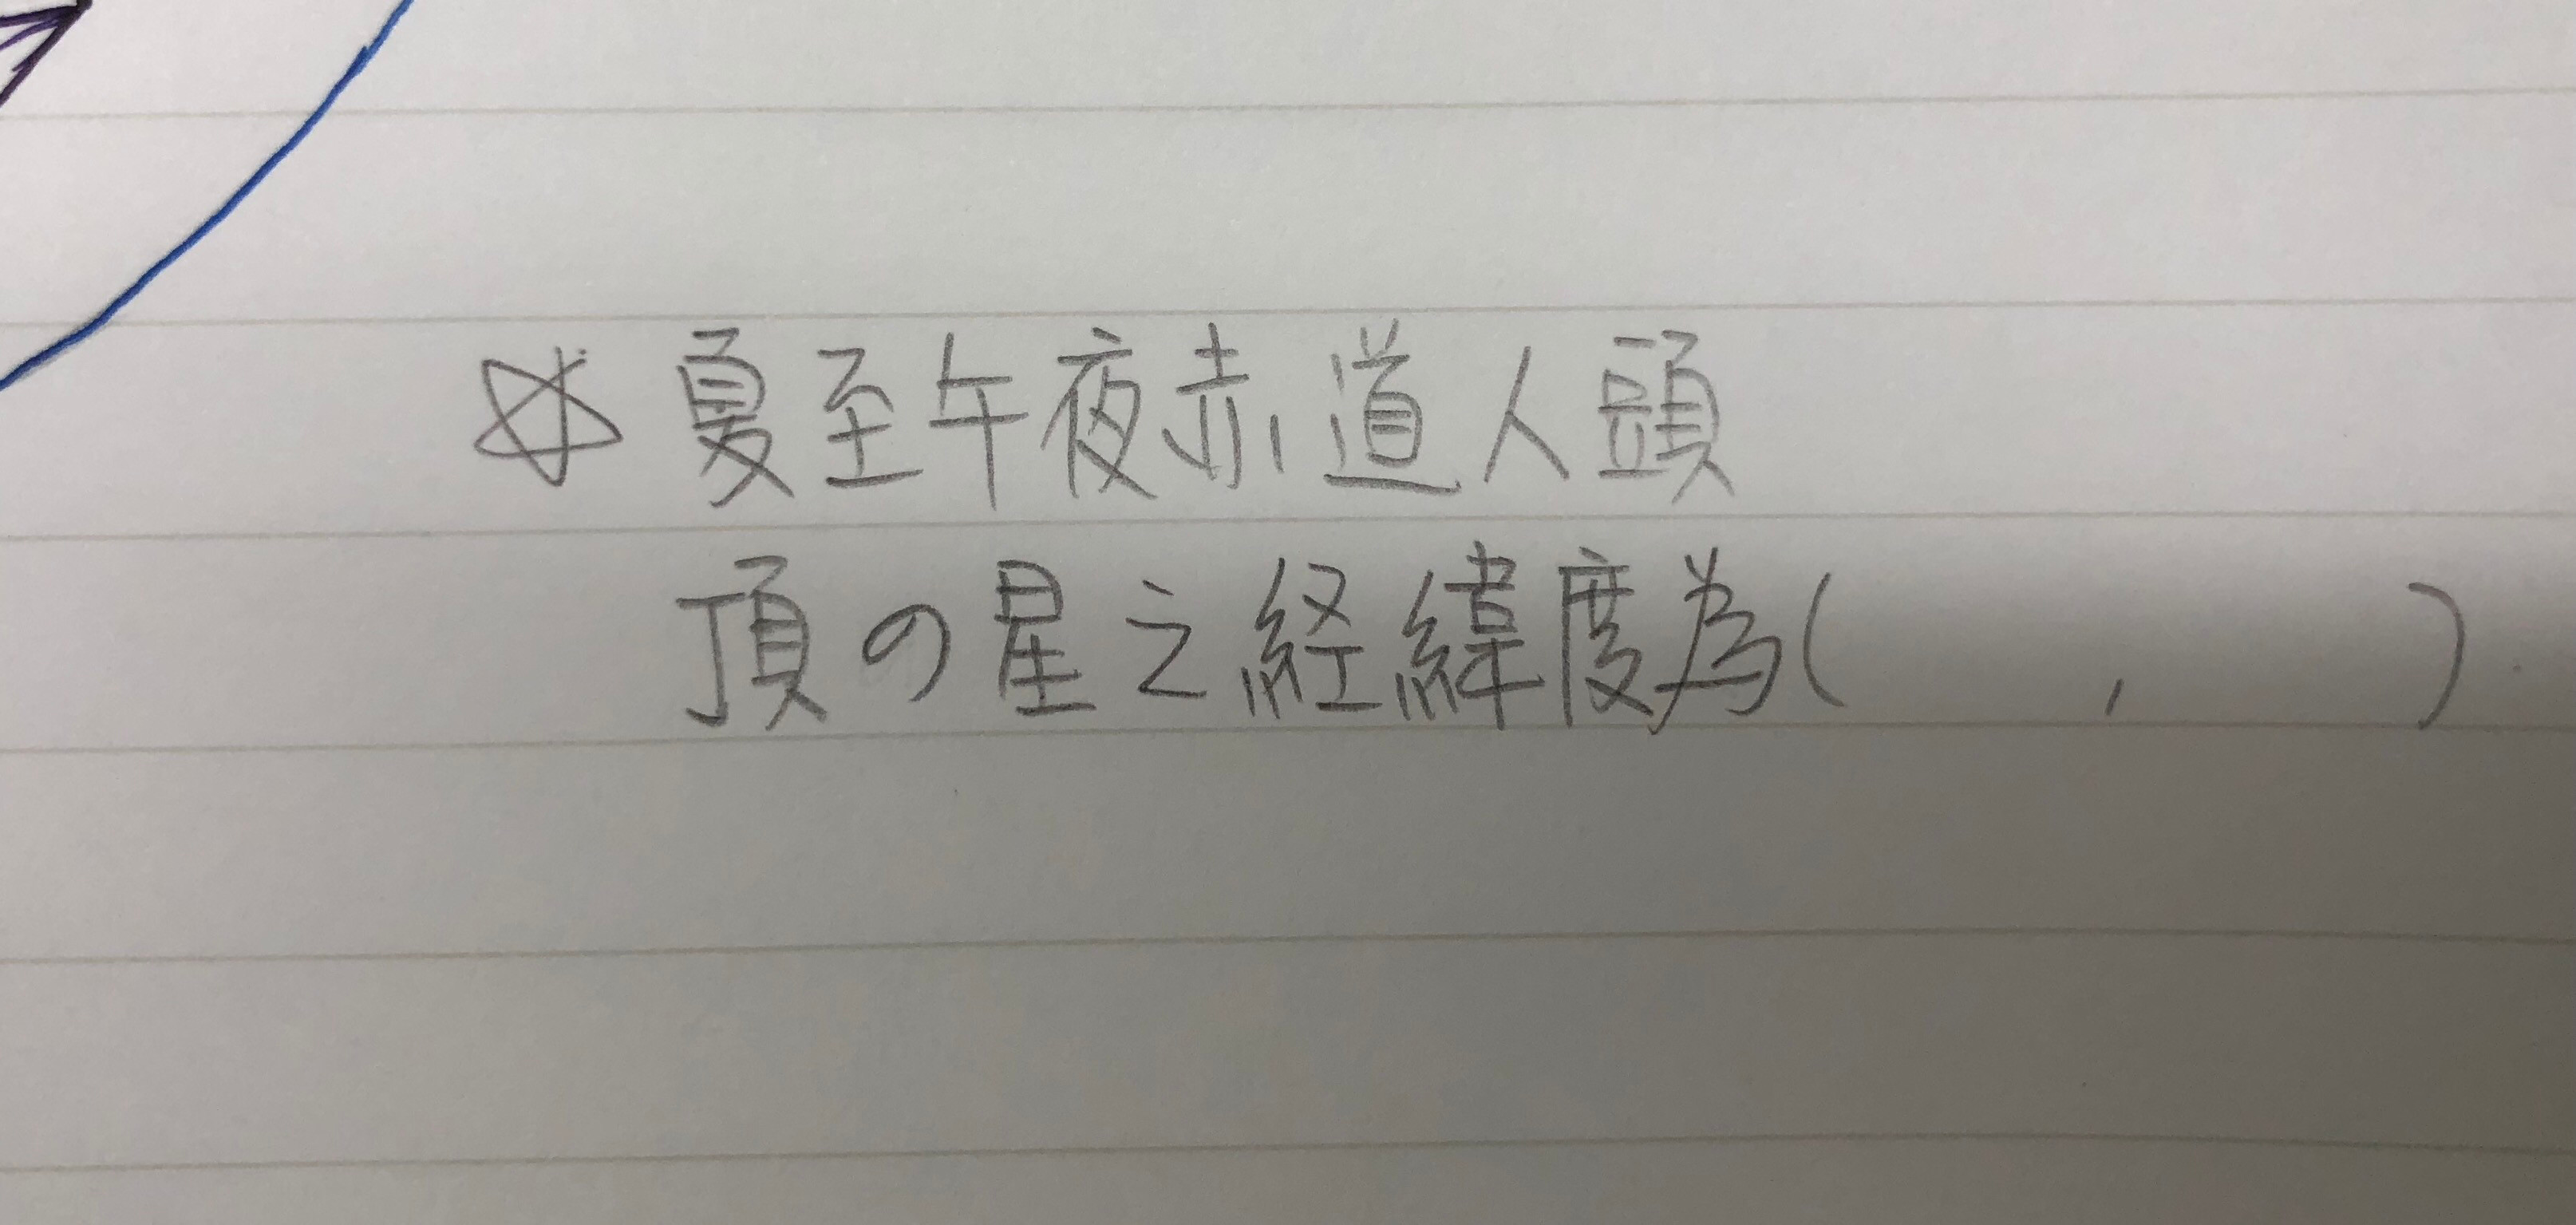 ☆夏至午夜赤道人頭
頂の星之経緯度為(　　,　　)